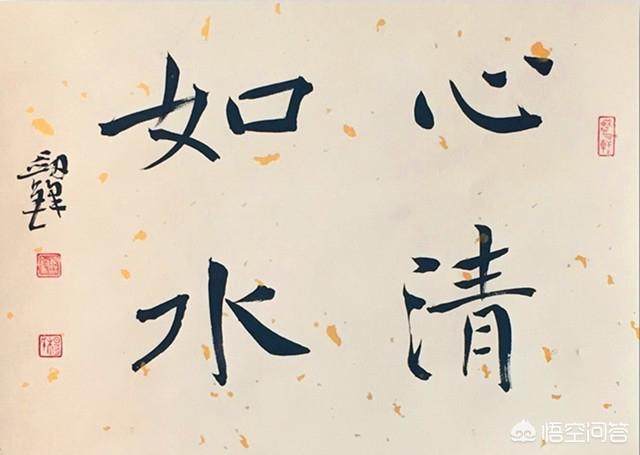 心清
如水
悟空问答